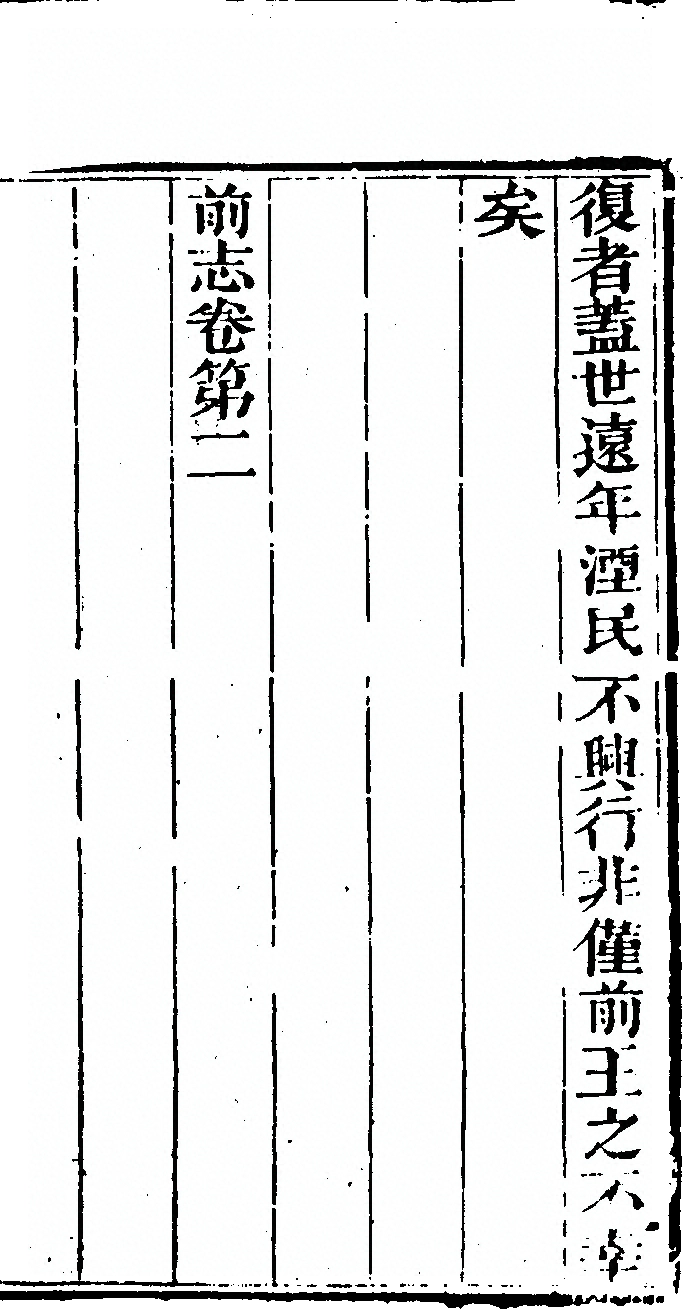 復者蓋世遠年湮民不興行非僅前王之不幸
矣
前志卷第二